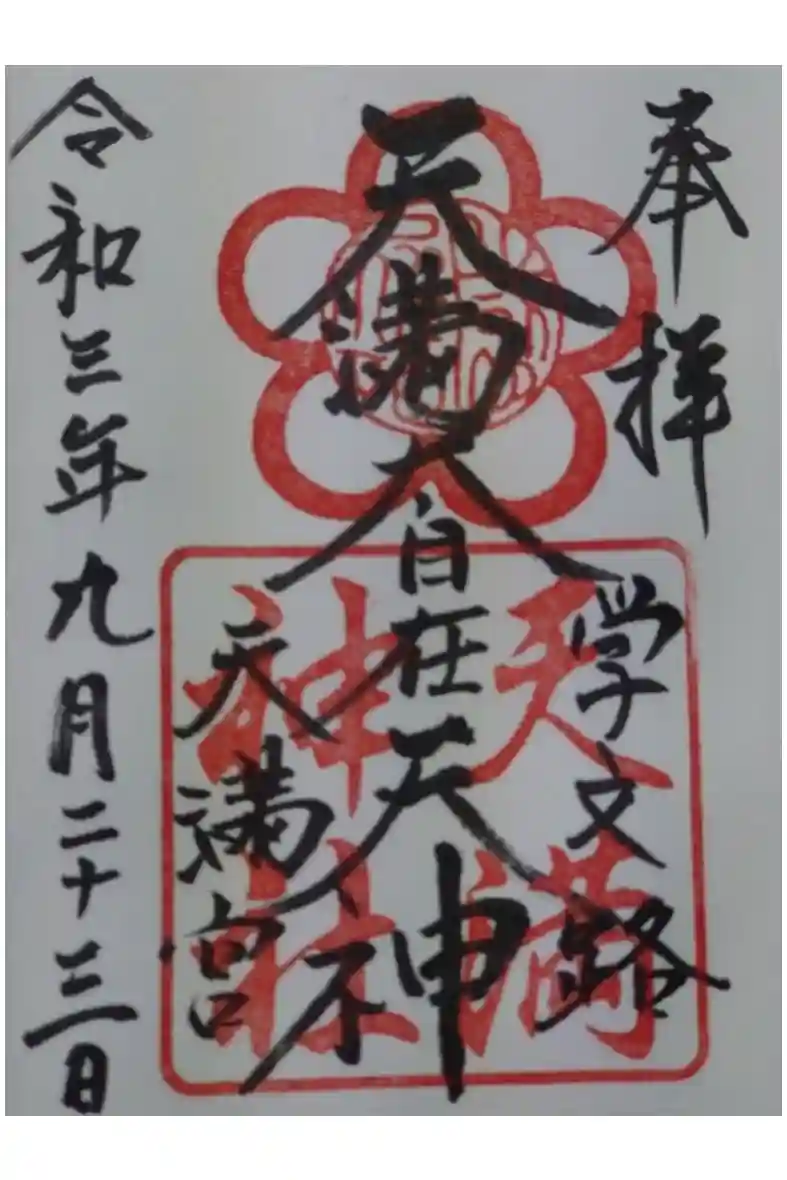 奉拝
学文路
天満大自在天神
天満宮
令和三年九月二十三日
天満
神社